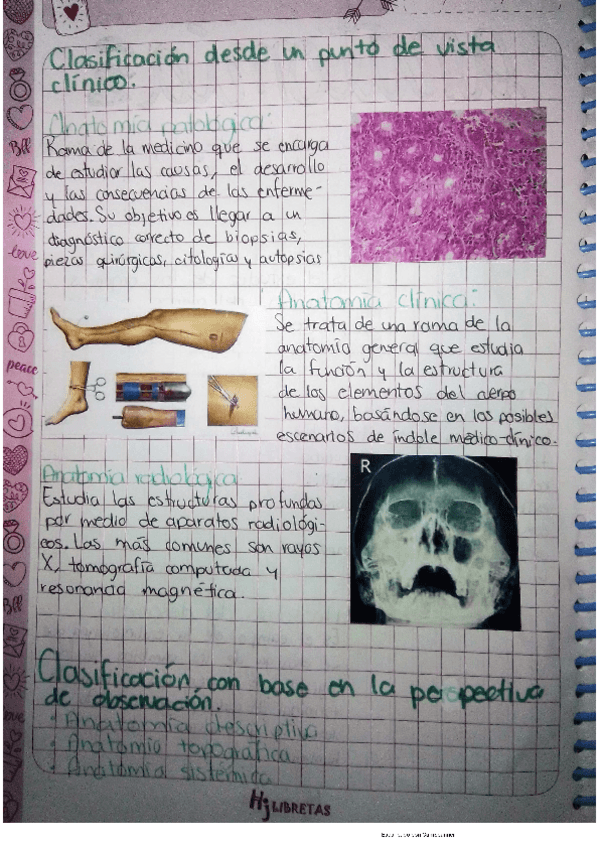 Clasificación desde un punto de vista
clínico.
Anatomía patológica:
Rama de la medicina que se encarga
de estudiar las causas, el desarrollo
y las consecuencias de las enferme-
dades. Su objetivo es llegar a un
diagnóstico correcto de biopsias,
piezas quirúrgicas, citologías y autopsias
Anatomía clínica:
Se trata de una rama de la
anatomía general que estudia
la función y la estructura
de los elementos del cuerpo
humano, basándose en los posibles
escenarios de índole médico-clínico.
Anatomía radiológica
Estudia las estructuras profundas
por medio de aparatos radiológi-
cos. Las más comunes son rayos
X, tomografía computada y
resonancia magnética.
R
Clasificación con base en la perspectiva
de observación.
• Anatomía descriptiva
• Anatomía topográfica
• Anatomía sistémica
Bff
love
peace
Bff
love
Hj LIBRETAS
Escaneado con CamScanner